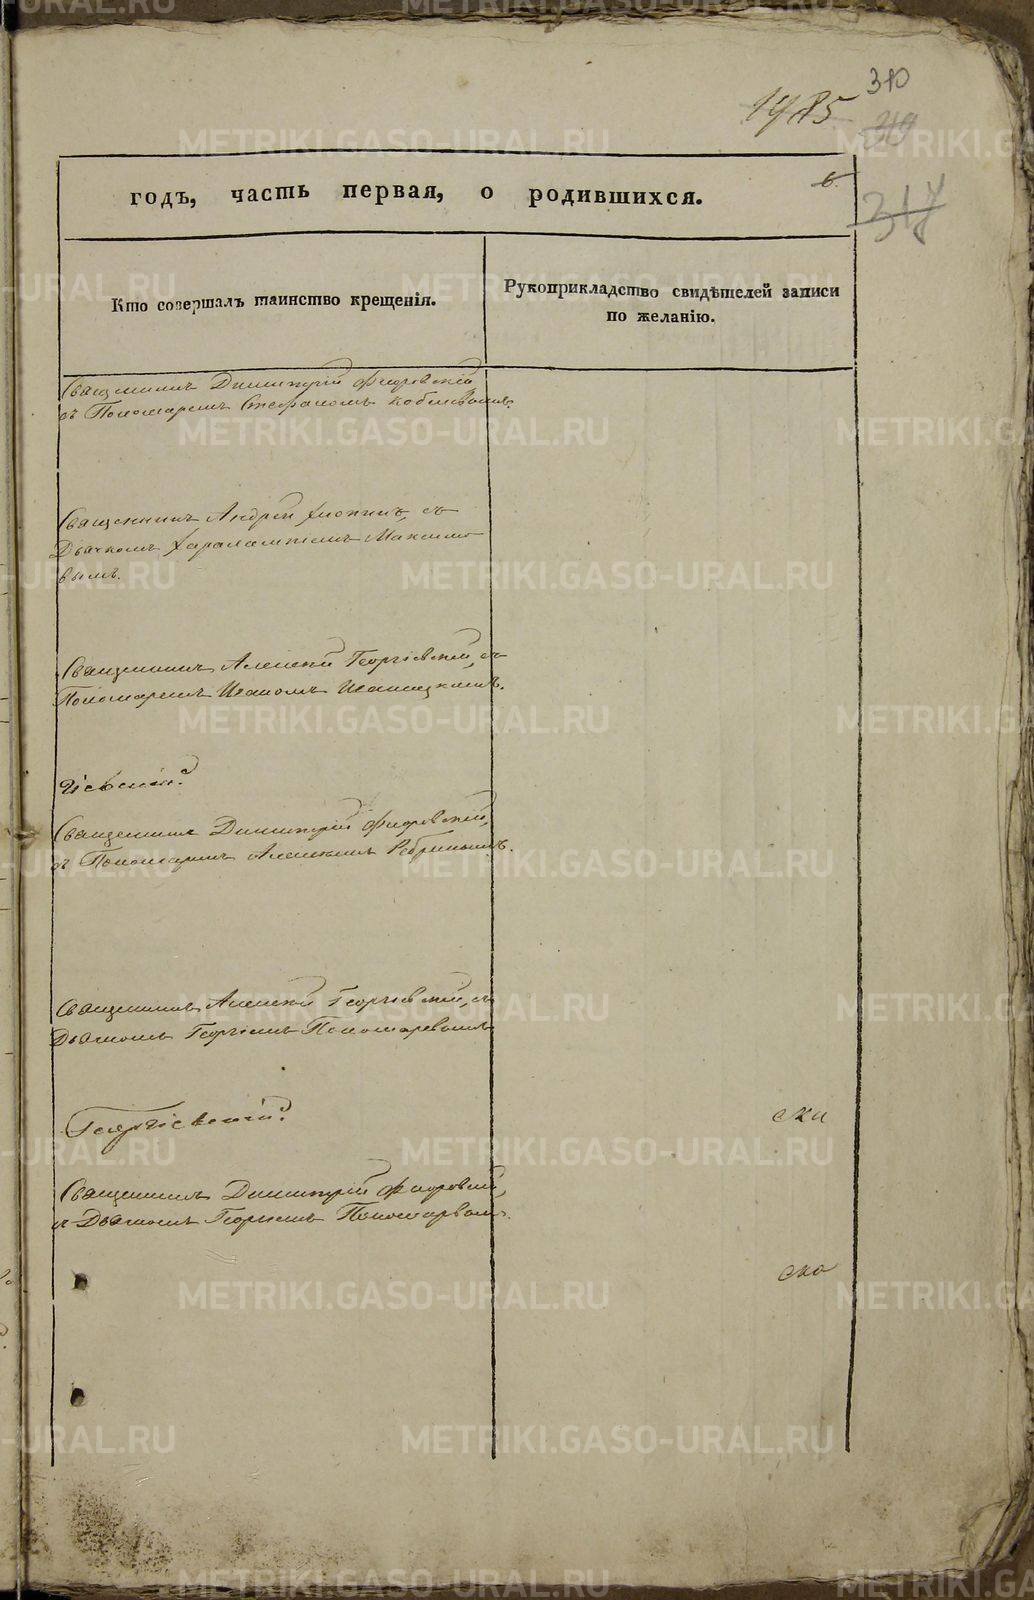 310
1985
319
317
6.
годъ, часть первая, о родившихся.
Кто совершалъ таинство крещенія.
Рукоприкладство свидѣтелей записи
по желанію.
Священникъ Димитрій Флоровскій
съ Пономаремъ Стефаномъ
Священникъ Андрей Хіонинъ, съ
Дьячкомъ Харалампіемъ Максимо
вымъ.
Священникъ Алексій Георгіевскій, съ
Пономаремъ Иваномъ
Священникъ Димитрій Флоровскій,
съ Пономаремъ Алексѣемъ
Священникъ Алексій Георгіевскій, съ
Дьякомъ Георгіемъ Пономаревымъ
Георгіевскій
Священникъ Димитрій Флоровскій,
съ Георгіемъ Пономаревымъ.
METRIKI.GASO-URAL.RU